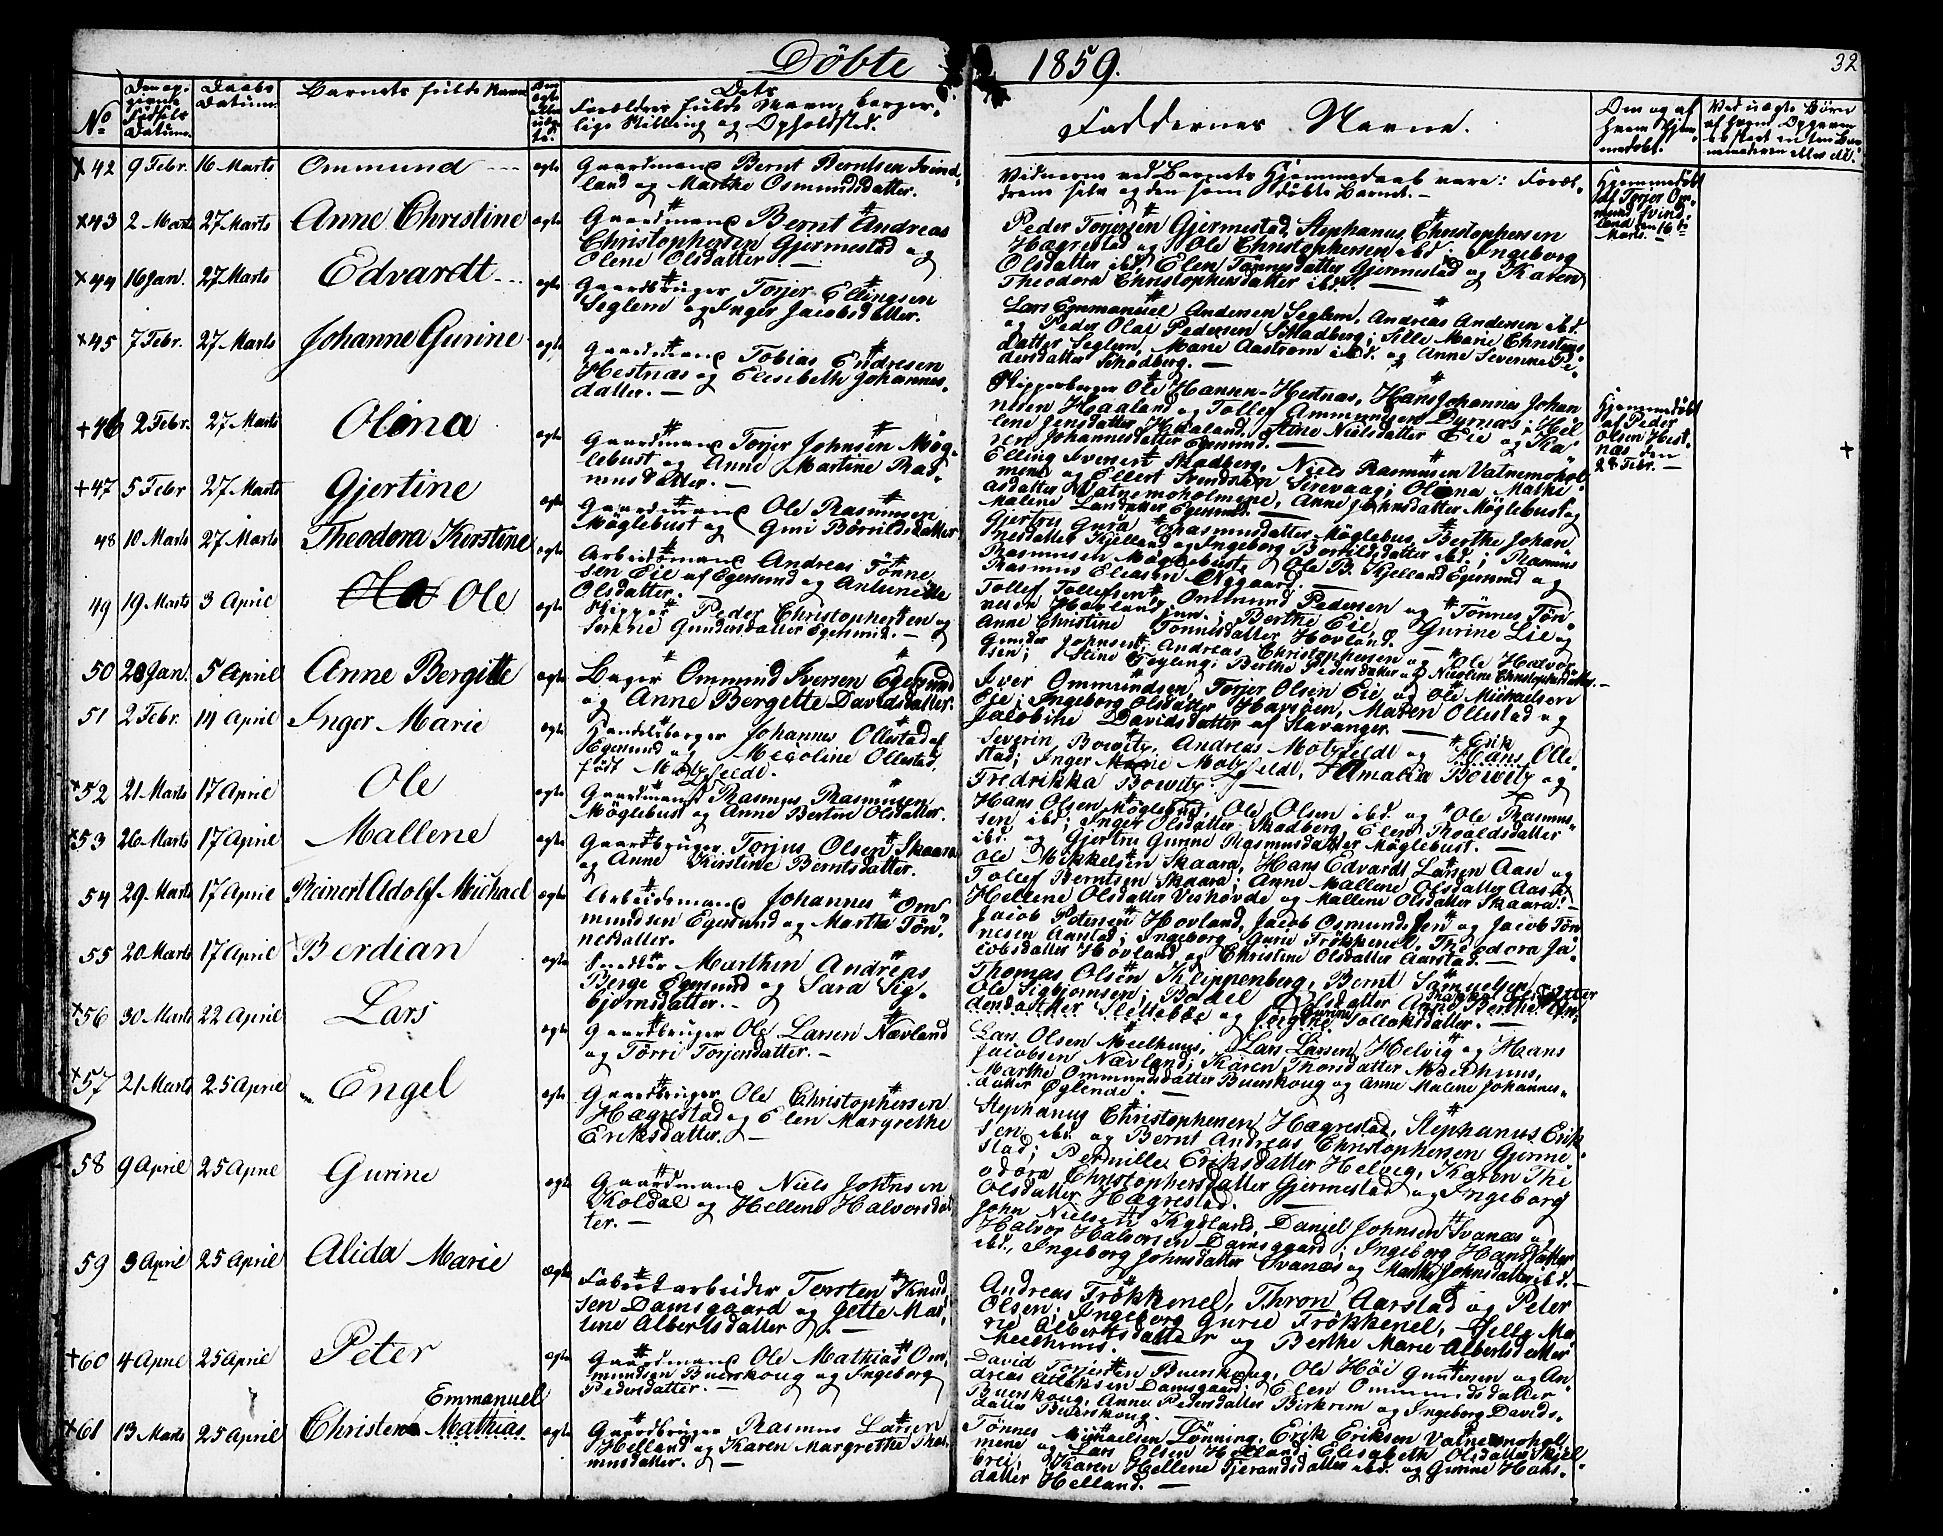 Døbte 1859.
32
No
Barnets fulde Navn
Daabs Datum.
Dets
Forældres fulde Navn, borger-
lige Stilling og Opholdsted.
Faddernes Navne.
Om og af
hvem Hjem-
medøbt.
42 9 Febr. 16 Marts Ommund --- ægte
Gaardmand Bernt Berntsen Svind-
land og Marthe Osmundsdatter.
Vidnerne ved Barnets Hjemmedaab vare: Foræl-
drene selv og den som døbte Barnet. -
Hjemmedøbt
af Torjer Om-
mund Svind-
land den 16de
Marts. -
43 2 Marts 27 Marts Anne Christine ægte
Gaardmand Bernt Andreas
Christophersen Gjermestad og
Olene Olsdatter. -
Peder Torjersen Gjermestad, Stephanus Christophersen
Hægrestad og Ole Christophersen ibd.; Ingeborg
Olsdatter ibd., Elen Tønnesdatter Gjermestad og Karen
Theodora Christophersdatter ibd. -
44 16 Jan. 27 Marts Edvardt --- ægte
Gaardbruger Torjer Ellingsen
Seglem og Inger Jacobsdatter.
Lars Emmanuel Andersen Seglem, Andreas Andersen ibd.
og Peder Olai Pedersen Skadberg; Sille Marie Christens-
datter Seglem, Marie Aastrom ibd. og Anne Severine Pe-
dersdatter Skadberg. -
45 7 Febr. 27 Marts Johanne Gurine ægte
Gaardmand Tobias Endresen
Hestnæs og Elisabeth Johannes-
datter. -
Skipperborger Ole Hansen Hestnæs, Hans Johannes Johan
nesen Haaland og Tollef Ammundsen Dyrnæs; Hel
lene Jensdatter Haaland, Stine Nielsdatter Eie og Ka-
ren Johannesdatter Egersund. -
Hjemmedøbt
af Peder
Olsen Hest-
næs den
28 Febr. -
46 2 Febr. 27 Marts Olina ægte
Gaardmand Torjer Johnsen Møg-
lebust og Anne Martine Ras-
musdatter. -
Elling Iversen Skadberg, Niels Rasmusen Vatnemohol-
mene og Ellert Svendsen Sirevaag; Olina Mathi-
asdatter Vatnemoholmene, Anne Johnsdatter Møglebust og
Malene Larsdatter Egersund. -
47 5 Febr 27 Marts Gjertine ægte
Gaardmand Ole Rasmusen
Møglebust og Guri Børrildsdatter
Gjertru Gura Rasmusdatter Møglebus, Berthe Johan
nesdatter Kjelland og Ingeborg Borrildsdatter ibd.; Rasmus
Rasmusen Møglebust, Ole B. Kjelland Egersund og
Rasmus Eliasen Nygaard. -
48 10 Marts 27 Marts Theodora Kirstine ægte
Arbeidsmand Andreas Tønne
sen Eie af Egersund og Antonette
Olsdatter. -
Tollef Tollefsen, Ommund Pedersen og Tønnes Tøn-
nesen Hovland jun.; Berthe Eie, Gurine Lie og
Anne Christine Tønnesdatter Hovland. -
49 19 Marts 3 April Ole ægte
Skipper Peder Christophersen og
Serine Gundersdatter Egersund. -
Gunder Johnsen, Andreas Christophersen og Ole Halvor-
sen; Stine Tegling, Berthe Pedersdatter og Nicoline Christophersdatter. -
50 28 Jan. 5 April Anne Bergitte ægte
Bager Ommund Iversen Egersund
og Anne Bergette Davidsdatter.
Iver Ommundsen, Torjer Olsen Eie og Ole Michaelsen
Eie; Ingeborg Olsdatter Havsøen, Maren Ollestad og
Jacobine Davidsdatter af Stavanger. -
51 2 Febr. 14 April Inger Marie ægte
Handelsborger Johannes Ollestad af
Egersund og Nicoline Ollestad,
født Motzfeldt.
Severin Bowitz, Andreas Motzfeldt og Erik
stad; Inger Marie Motzfeldt, Amalia Bowitz og
Fredrikka Bowitz. -
52 21 Marts 17 April Ole ægte
Gaardmand Rasmus Rasmusen
Møglebust og Anne Bertine Olsdatter.
Hans Olsen Møglebust, Ole Olsen ibd. og Ole Rasmus-
sen ibd.; Inger Olsdatter Skadberg, Elen Roaldsdatter
ibd. og Gjertru Gurine Rasmusdatter Møglebust. -
53 26 Marts 17 April Mallene ægte
Gaardbruger Torjus Olsen Skaara
og Anne Kirstine Berntsdatter.
Ole Mikkelsen Skaara, Hans Edvardt Larsen Aase og
Tollef Berntsen Skaara; Anne Mallene Olsdatter Aase,
Hellene Olsdatter Veshovde og Mallene Olsdatter Skaara. -
54 29 Marts 17 April Reinert Adolf Michael ægte
Arbeidsmand Johannes Om-
mundsen Egersund og Martha Tøn-
nesdatter.
Jacob Petersen Hovland, Jacob Osmundsen og Jacob Tøn
nesen Aarstad; Ingeborg Gurie Frøkkenel, Theodora Ja-
cobsdatter Hovland og Christine Olsdatter Aarstad. -
55 20 Marts 17 April Berdian ægte
Snedker Marthin Andreas
Berge Egersund og Sara Sig-
bjørnsdatter. -
Thomas Olsen Klippenberg, Bernt Samuelsen,
Ole Sigbjørnsen; Bodil Olsdatter
dersdatter Slettebøe og Gurine Tollaksdatter. -
56 30 Marts 22 April Lars ægte
Gaardbruger Ole Larsen Nævland
og Tørri Torjersdatter. -
Lars Olsen Meelhuus, Lars Larsen Helvig og Hans
Jacobsen Nævland; Karen Thorsdatter Meelhuus,
Marthe Ommundsdatter Buerskoug og Anne Malene Johannes-
datter Øglende. -
57 21 Marts 25 April Engel ægte
Gaardbruger Ole Christophersen
Hægrestad og Elen Margrethe
Eriksdatter. -
Stephanus Christophersen Hægrestad, Stephanus Erik-
sen ibd. og Bernt Andreas Christophersen Gjerme
stad; Pernille Eriksdatter Helvig, Karen The
odora Christophersdatter Gjermestad og Ingeborg
Olsdatter Hægrestad. -
58 9 April 25 April Gurine ægte
Gaardmand Niels Johnsen
Koldal og Hellene Halvorsdat
ter. -
John Nielsen Kydland, Daniel Johnsen Svanæs og
Halvor Halvorsen Damsgaard; Ingeborg Hansdatter
ibd., Ingeborg Johnsdatter Svanæs og Marthe Johnsdatter ibd. -
59 3 April 25 April Alida Marie ægte
Fabrikarbeider Torsten Knud-
sen Damsgaard og Jette Mar-
tine Albertsdatter. -
Andreas Frøkkenel, Thron Aarstad og Peter
Olsen; Ingeborg Gurie Frøkkenel, Sille Ma-
rie Albertsdatter og Berthe Marie Albertsdatter
Meelhuus. -
60 4 April 25 April Peter ægte
Gaardmand Ole Mathias Om-
mundsen Buerskoug og Ingeborg
Pedersdatter. -
David Torjersen Buerskoug, Ole Høi Guttersen og An-
dreas Aslaksen Damsgaard; Elen Ommundsdatter
Buerskoug, Anne Pedersdatter Birkrem og Ingeborg Davids-
datter Buerskoug. -
61 13 Marts 25 April Christen Emmanuel Mathias ægte
Gaardbruger Rasmus Larsen
Helland og Karen Margrethe Ras-
musdatter. -
Tønnes Michaelsen Lønning, Erik Eriksen Vatnemohol
mene og Lars Olsen Helland; Elisabeth Olsdatter Skjel-
brei, Karen Hellene Tjerandsdatter ibd. og Gurine Hans-
datter Helland. -